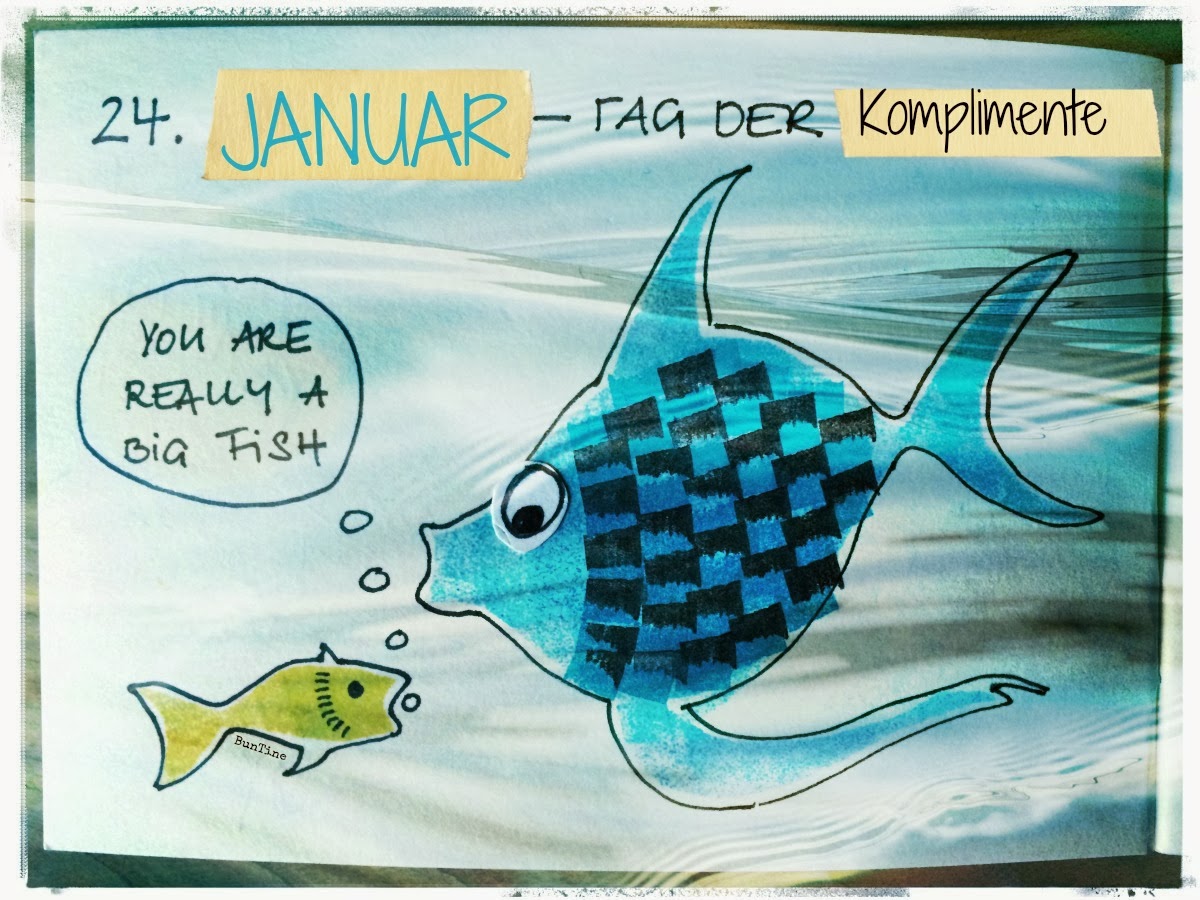 24. JANUAR – TAG DER Komplimente
YOU ARE
REALLY A
BIG FISH
BunTine